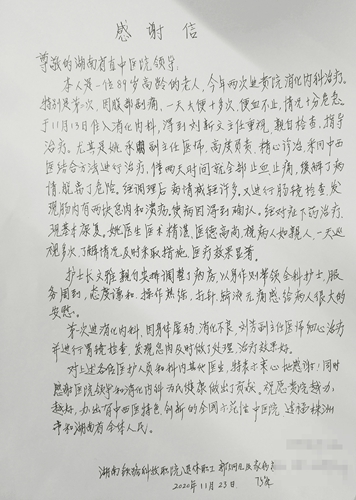 感谢信
尊敬的湖南省直中医院领导:
本人是一位89岁高龄的老人,今年两次进贵院消化内科治疗。
特别是第二次,因腹部剧痛,一天大便十多次,便血不止,情况十分危急
于11月13日住入消化内科,得到刘新文主任重视,亲自检查,指导
治疗。尤其是姚 副主任医师,高度负责,精心诊治,采用中西
医结合方法进行治疗,仅两天时间就全部止血止痛,缓解了病
情,脱离了危险。经调理后病情减轻许多,又进行肠镜检查,发
现肠内有两块息肉和溃疡,使病因得到确认。经对症下药治疗,
现基本康复。她医生医术精湛,医德高尚,视病人如亲人,一天巡
视多次,了解情况及时采取措施,医疗效果显著。
护士长文雅,亲自安排调整了病房,以身作则带领全科护士,服
务周到,态度谦和,操作熟练,打针输液无痛感,给病人很大的
安慰。
第一次进消化内科,因身体虚弱,消化不良,刘芳副主任医师细心治疗
并进行胃镜检查,发现息肉及时做了处理,治疗效果好。
对上述各位医护人员和科内其他医生,特表示衷心地感谢!同时
感谢医院领导和消化内科为民健康做出了贡献。祝愿贵院越办
越好,办出有中西医特色创新的全国示范性中医院,造福株洲
市和湖南省全体人民。
湖南铁路科技职院退休职工 郭
2020年11月23日